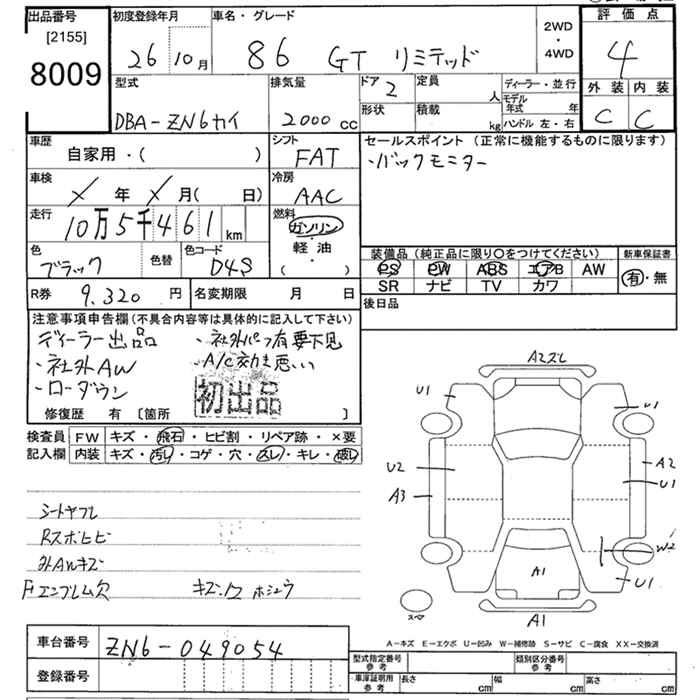 出品番号 初度登録年月 車名・グレード 2WD・4WD 評価点
[2155]
8009 26 10月 86 GT リミテッド 4
型式 排気量 ドア 2 定員 人 ディーラー・並行 外装 内装
DBA-ZN6カイ 2000 cc 形状 積載 kg モデル年式 年 ハンドル 左・右 C C
車歴 シフト セールスポイント (正常に機能するものに限ります)
自家用・( ) FAT ・バックモニター
車検 冷房
年 月( 日) AAC
走行 燃料
10万5千461 km ガソリン
色 色替 色コード 軽・油
ブラック D4S ( )
装備品 (純正品に限り〇をつけてください) 新車保証書
PS PW ABS エアB AW 有・無
SR ナビ TV カワ
R券 9,320 円 名変期限 月 日 後日品
注意事項申告欄(不具合内容等は具体的に記入して下さい)
ディーラー出品 ・社外パーツ有要下見
・社外AW ・A/C効き悪い
・ローダウン 初出品
修復歴 有 [箇所 ]
検査員 FW キズ・飛石・ヒビ割・リペア跡・×要
記入欄 内装 キズ・汚レ・コゲ・穴・スレ・キレ・破レ
シートヤブレ
Rスポヒビ
外AWキズ
Fエンブレム欠 キズ凹ホシュウ
A2ズレ
U1 U1
U2 A2
A3 U1
W2
A1 U1
スペア A1
A-キズ E-エクボ U-凹み W-補修跡 S-サビ C-腐食 XX-交換済
車台番号 ZN6-049054
登録番号
型式指定番号 参考 類別区分番号 参考
車庫証明用 参考 長さ cm 幅 cm 高さ cm